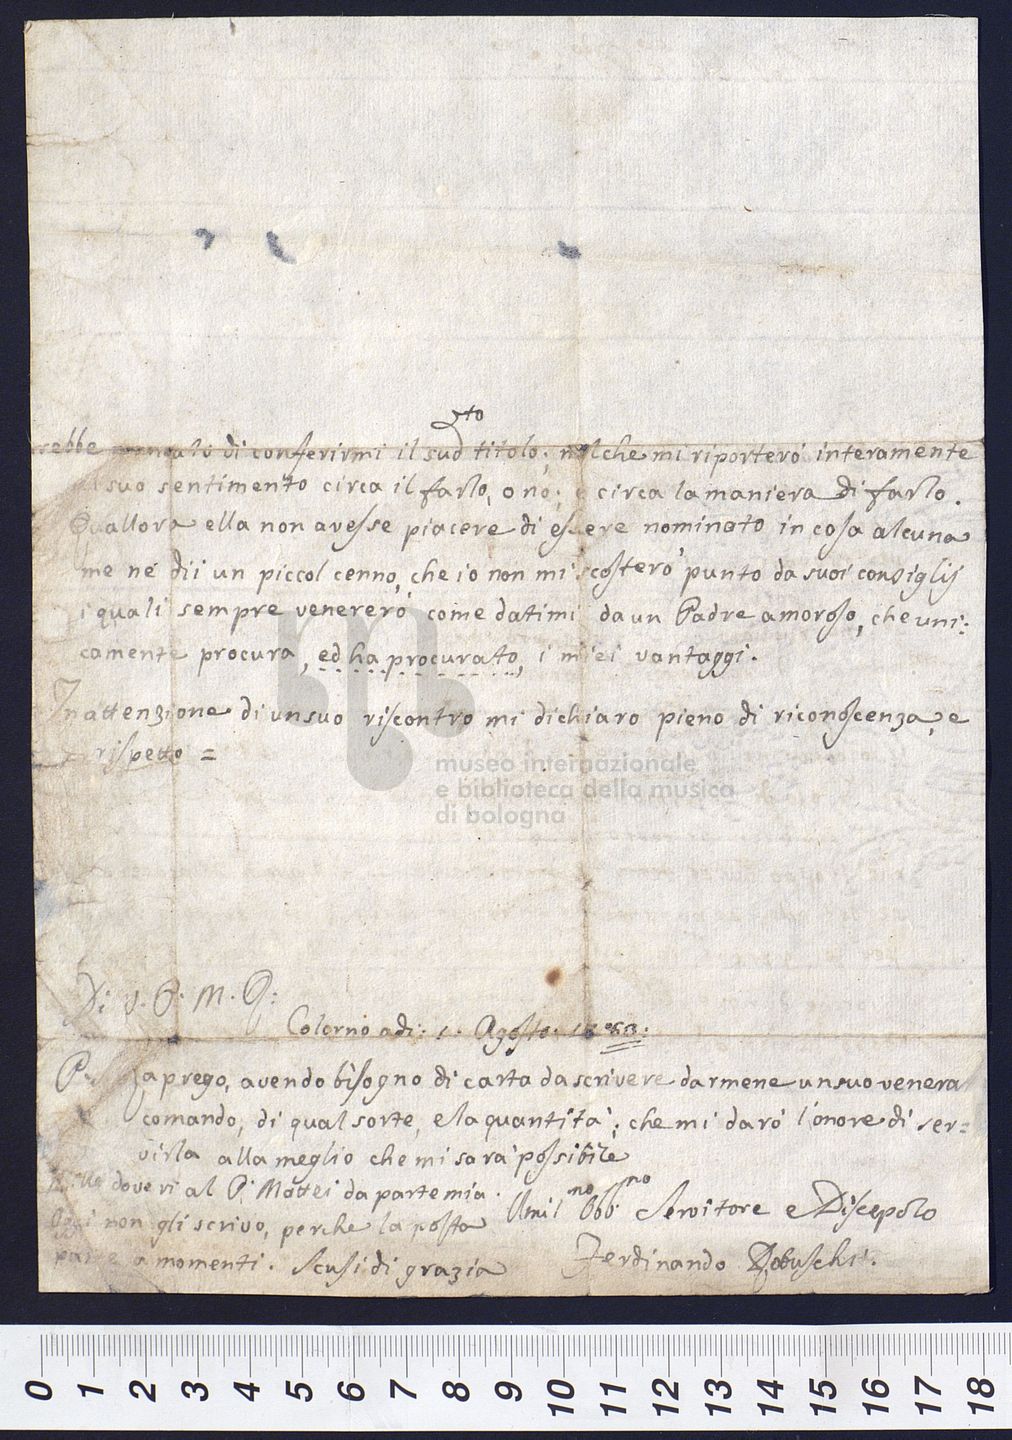 to
rebbe pensato di conferirmi il sud titolo; nel che mi riporterò interamente
al suo sentimento circa il farlo, o nò; e circa la maniera di farlo.
Quallora ella non avesse piacere di essere nominato in cosa alcuna
me nè dii un piccol cenno, che io non mi scosterò punto da suoi consiglij
i quali sempre venererò come datimi da un Padre amoroso, che uni:
camente procura, ed ha procurato, i miei vantaggi.
In attenzione di un suo riscontro mi dichiaro pieno di riconoscenza, e
rispetto =
museo internazionale
e biblioteca della musica
di bologna
Di V. P. M. R:
Colorno adi: 1. Agosto.
P. La prego, avendo bisogno di carta da scrivere darmene un suo venera
comando, di qual sorte, e la quantità; che mi darò l'onore di ser=
virla alla meglio che mi sarà possibile
Mille doveri al P. Mattei da parte mia.
Oggi non gli scrivo, perche la posta
parte a momenti. Scusi di grazia
Umil no Obb: no Servitore e Discepolo
Ferdinando Robuschi.
0 1 2 3 4 5 6 7 8 9 10 11 12 13 14 15 16 17 18